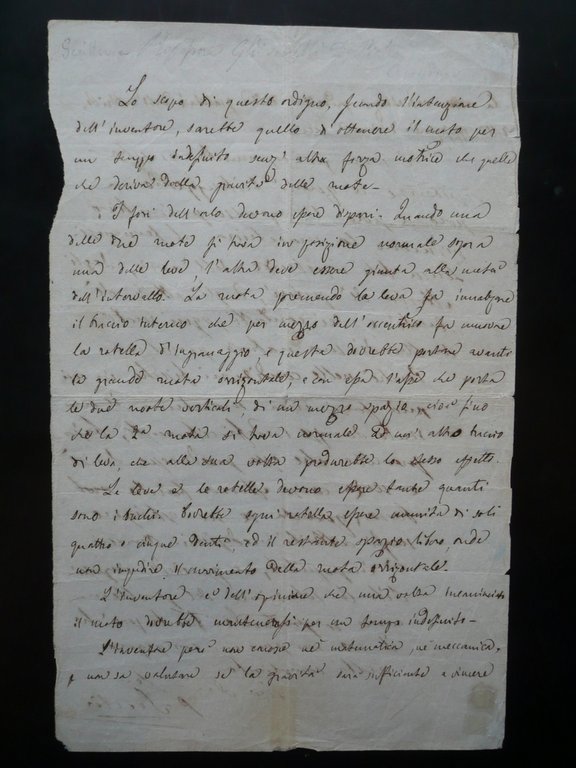 Lo scopo di questo ordigno, secondo l'intenzione
dell'inventore, sarebbe quello d'ottenere il moto per
un tempo indefinito senz' altra forza motrice che quella
che deriva dalla gravità delle ruote.
I fori dell'orlo devono essere dispari. Quando una
delle due ruote si trova in posizione normale sopra
una delle leve, l'altra deve essere giunta alla metà
dell'intervallo. La ruota premendo la leva fa innalzare
il braccio interno che per mezzo dell'eccentrico fa muovere
la rotella d'ingranaggio, e questa dovrebbe portare avanti
la grande ruota orizzontale, e con essa l'asse che porta
le due ruote verticali di un mezzo spazio, cioè fino
che la 2a ruota si trova normale ad un altro braccio
di leva, che alla sua volta produrrebbe lo stesso effetto.
Le leve e le rotelle devono essere tante quanti
sono i buchi. Dovrebbe ogni rotella essere munita di soli
quattro o cinque denti ed il restante spazio libero, onde
non impedire il movimento della ruota orizzontale.
L'inventore è dell'opinione che una volta incominciato
il moto dovrebbe mantenersi per un tempo indefinito.
L'inventore però non conosce nè matematica, nè meccanica,
e non sa valutare se la gravità sarà sufficiente a vincere